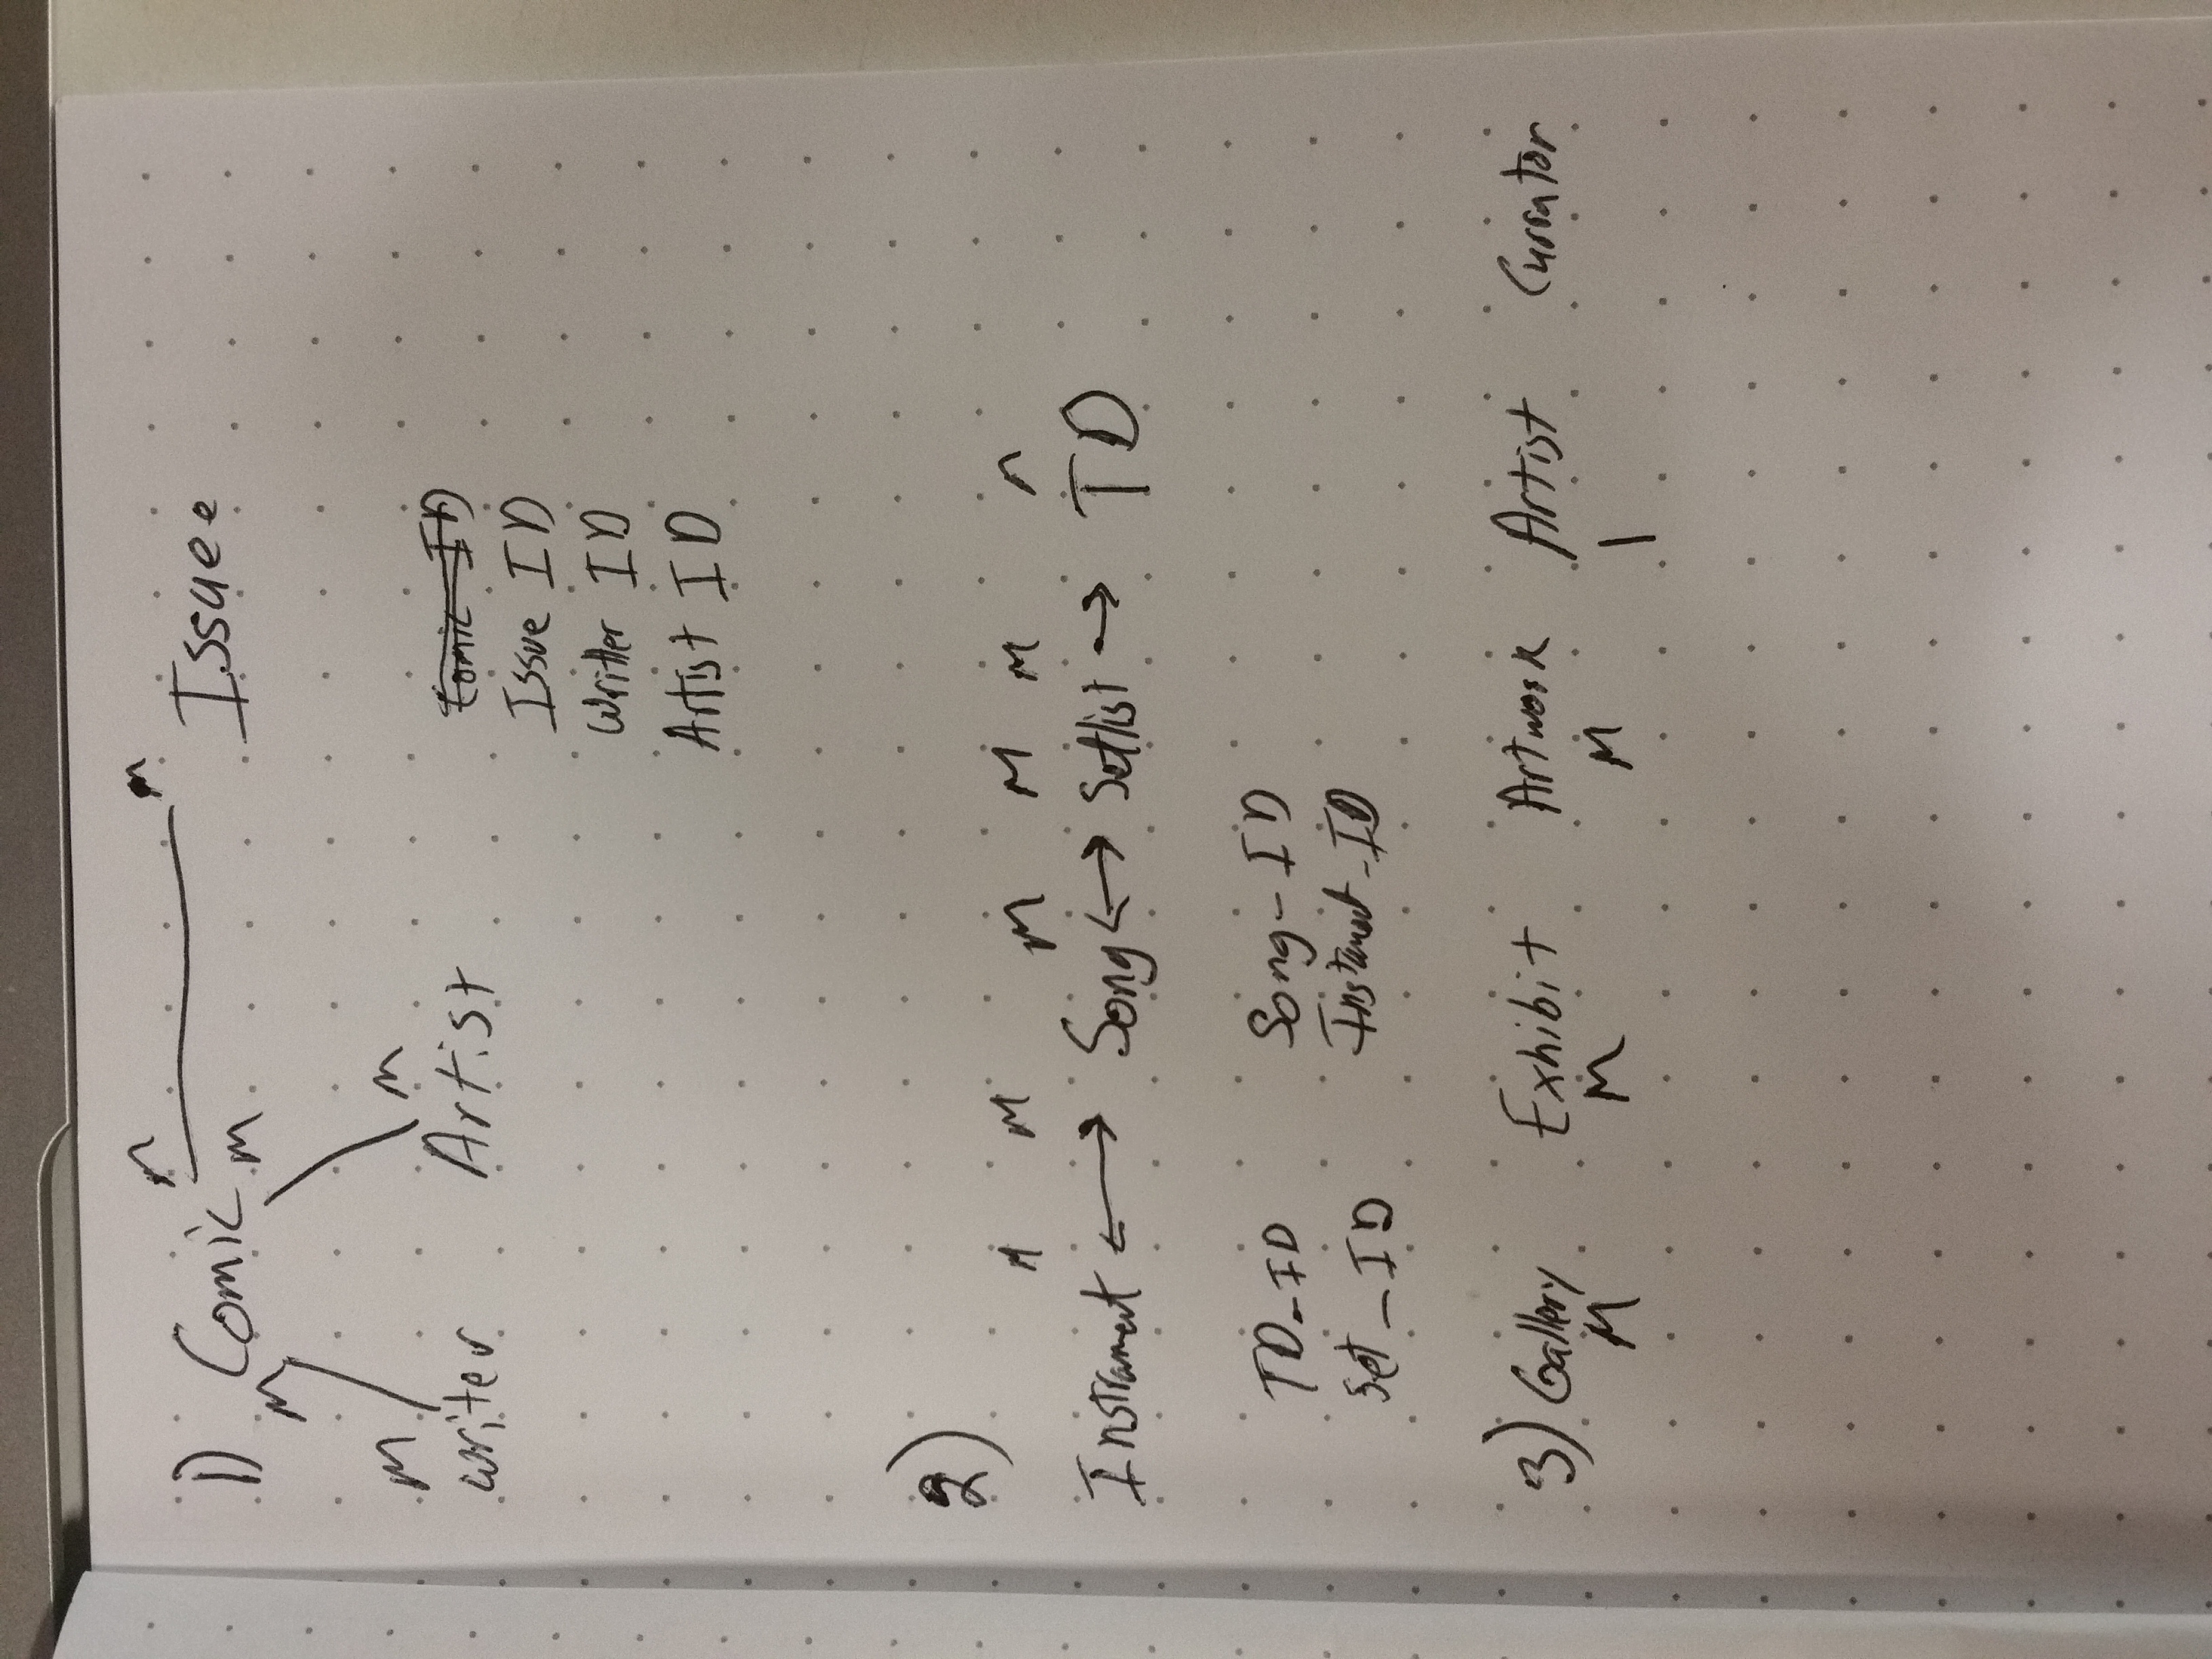 n m
1) Comic m Issuee
M
M m
writer Artist
Comic ID
Issue ID
Writler ID
Artist ID
2)
M M M M M n
Instrament ←→ Song ←→ Setlist → TD
TD_ID Song-ID
Set_ID Instament_ID
3) Gallery Exhibit Artwork Artist Currator
M M M 1